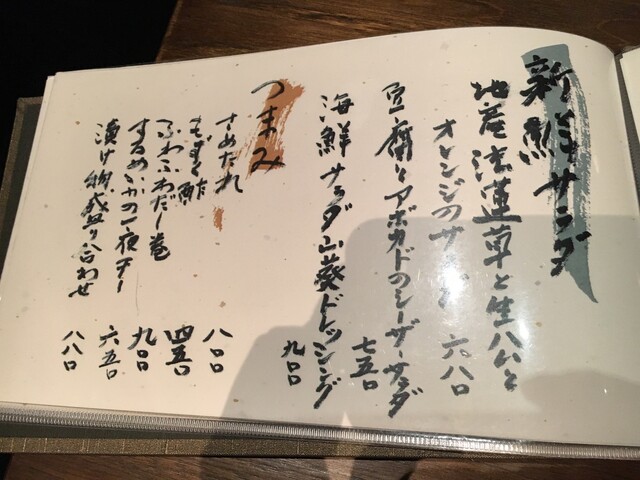 新鮮サラダ
地産法蓮草と生ハムと
オレンジのサラダ 六八〇
豆腐とアボカドのシーザーサラダ
七五〇
海鮮サラダ山葵ドレッシング
九〇〇
つまみ
さめたれ 八〇〇
もずく酢 四五〇
ふわふわだし巻 九〇〇
するめいかの一夜干し 六五〇
漬け物盛り合わせ 八八〇